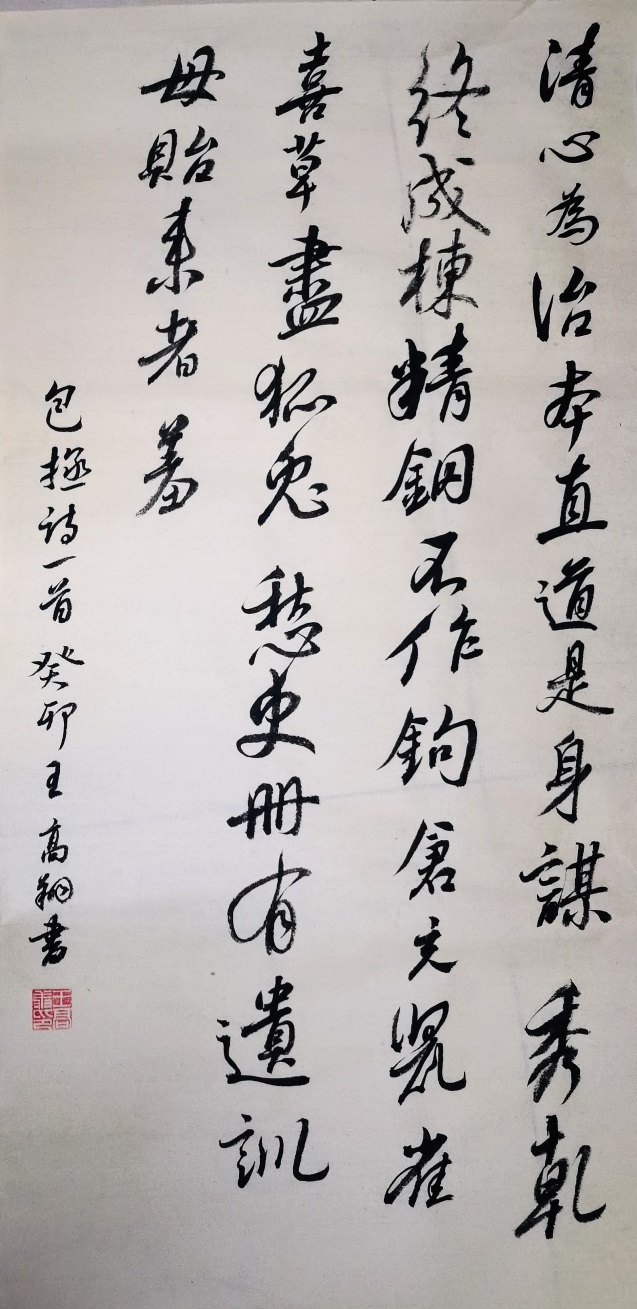 清心為治本直道是身謀秀乾
終成棟精鋼不作鉤倉充鼠雀
喜草盡狐兔愁史冊有遺訓
毋貽来者羞
包拯詩一首癸卯王高翔書